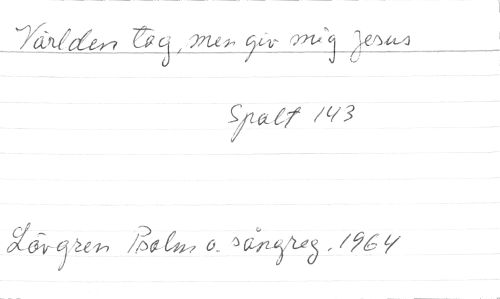 Världen tag, men giv mig Jesus
Spalt 143
Lövgren Psalm o. sångreg. 1964